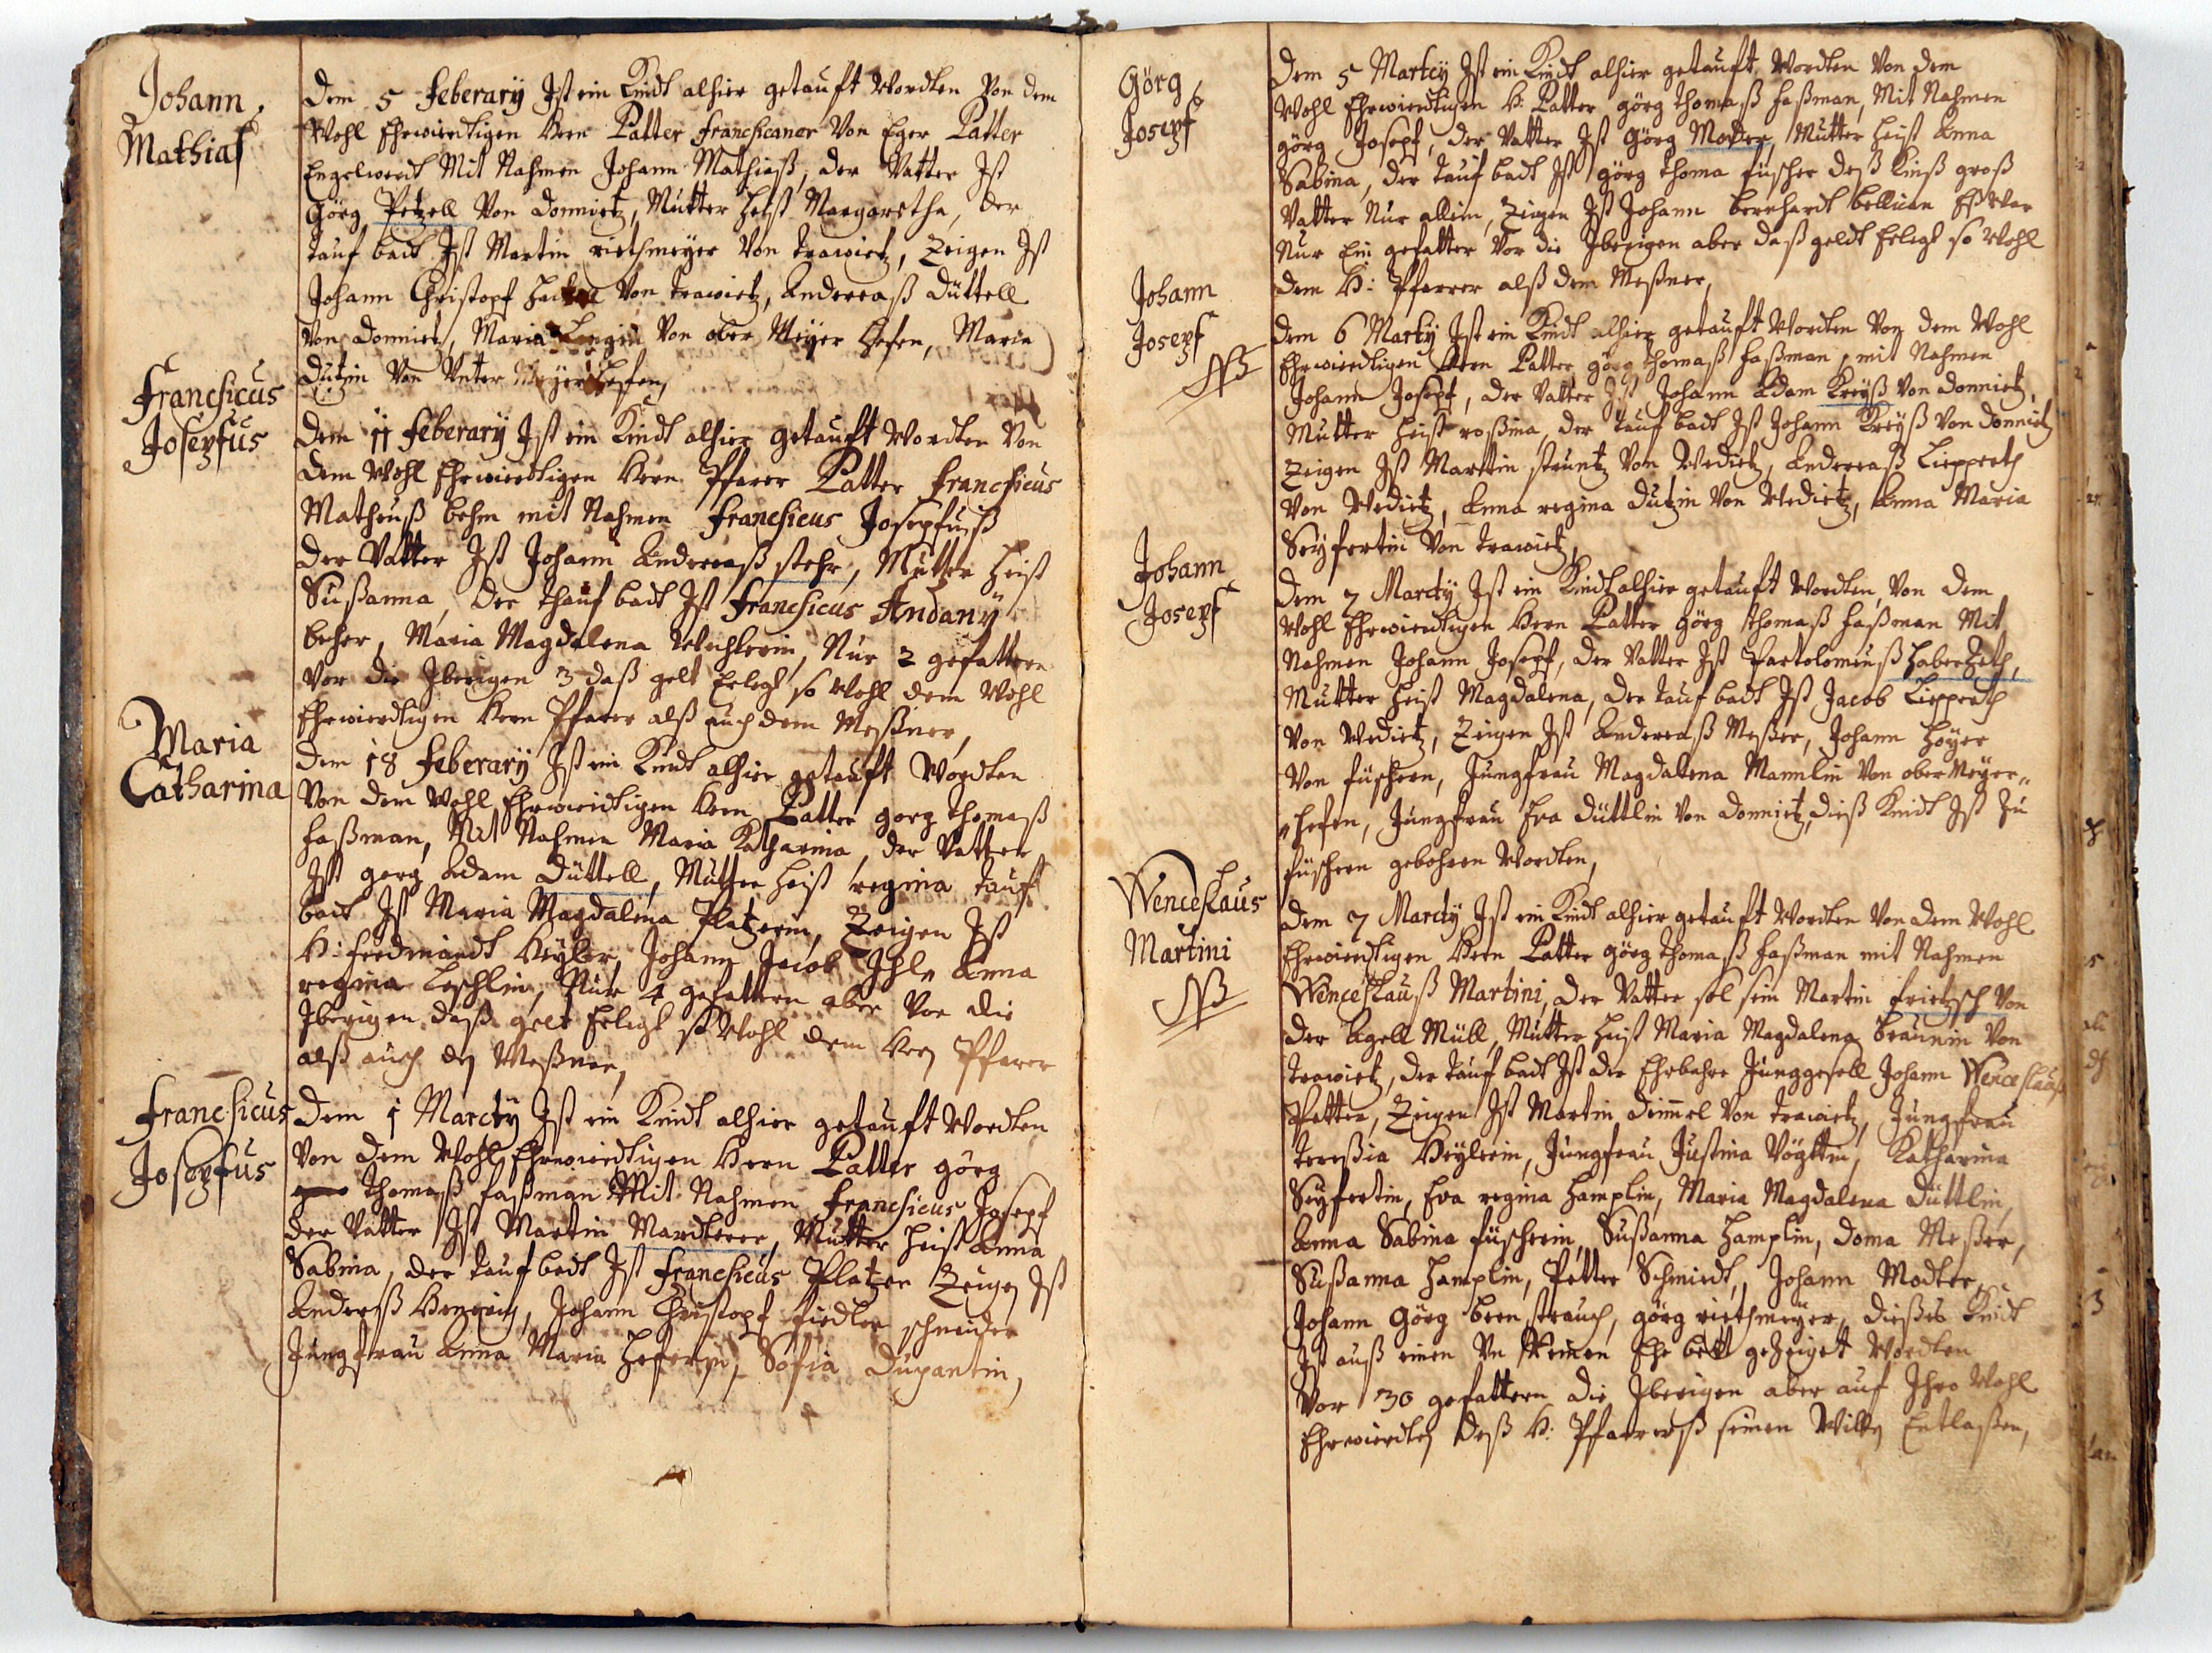 Johann
Mathias
Dem 5 Feberary Ist ein Kindt alhier getauft Wordten Von dem
Wohl Ehrwierdtigen Hern Patter Francsicaner Von Eger Patter
Engelwert Mit Nahmen Johann Mathiaß, der Vatter Ist
Görg Petzell Von Donnietz, Mutter heist Margaretha, der
tauf badt Ist Martin riethmeyer Von trawietz, Zeigen Ist
Johann Christopf Von trawietz, Anderraß Düttell
Von Donnietz, Maria Von ober Meyer Hefen, Maria
Dützin Von Unter Meyer Hefen,
Francsicus
Josepfus
Dem 11 Feberary Ist ein Kindt alhier getauft Wordten Von
dem Wohl Ehrwierdtigen Hern Pfarer Patter Francsicus
Matheuß behm mit Nahmen Francsicus Josepfuß
der Vatter Ist Johann Anderraß stehr, Mutter heist
Sußanna, der thauf badt Ist Francsicus Andany
becher, Maria Magdalena Wechlerin, Nur 2 gefattern
Vor die Iberigen 3 daß gelt Erlegt so Wohl dem Wohl
Ehrwierdtigen Hern Pfarer alß auch dem Meßner,
Maria
Catharina
Dem 18 Feberary Ist ein Kindt alhier getauft Wordten
Von dem Wohl Ehrwierdtigen Hern Patter gorg thomaß
haßman, Mit Nahmen Maria Katharina, der Vatter
Ist gorg Adam Düttell, Mutter heist regina tauf
badt Ist Maria Magdalina Platzerin, Zeigen Ist
H: Ferdinandt Heyler, Johann Jacob Ihl, Anna
regina Leschlin, Nur 4 gefattern aber Vor die
Iberigen daß gelt Erlegt so Wohl dem Hern Pfarer
alß auch den Meßner,
Francsicus
Josepfus
Dem 1 Marcty Ist ein Kindt alhier getauft Wordten
Von dem Wohl Ehrwierdtigen Hern Patter görg
thomaß haßman Mit Nahmen Francsicus Josepf
der Vatter Ist Martin Mardterer, Mutter heist Anna
Sabina, der tauf badt Ist Francsicus Platzer Zeigen Ist
Anderß, Johann Christopf fiedler schneider
Jungfrau Anna Maria Heferin, Sofia Dupantin,
Görg
Josepf
Dem 5 Martcy Ist ein Kindt alhier getauft Wordten Von dem
Wohl Ehrwierdtigen H: Patter görg thomaß haßman, Mit Nahmen
görg Josepf, der Vatter Ist Görg Modter, Mutter heist Anna
Sabina, der tauf badt Ist görg thoma füscher deß Kinß groß
Vatter Nur allein, Zeigen Ist Johann bernhardt bellican Eß War
Nur Ein gefatter Vor die Iberigen aber daß geldt Erlegt so Wohl
dem H: Pfarrer alß dem Meßner,
Johann
Josepf
NB
Dem 6 Marty Ist ein Kindt alhier getauft Wordten Von dem Wohl
Ehrwierdtigen Hern Patter görg thomaß haßman, mit Nahmen
Johann Josepf, der Vatter Ist Johann Adam Kreyß Von Donnietz,
Mutter heist roßina, der tauf badt Ist Johann Kreyß Von Donnietz
Zeigen Ist Martin struntz Von Wedietz, Anderraß Lippertt
Von Wedietz, Anna regina Dutzin Von Wedietz, Anna Maria
Seyfertin Von trawietz,
Johann
Josepf
Dem 7 Marcty Ist ein Kindt alhier getauft Wordten, Von dem
Wohl Ehrwierdtigen Hern Patter Görg thomaß haßman Mit
Nahmen Johann Josepf, der Vatter Ist Partolomeuß Haberzeth,
Mutter heist Magdalena, der tauf badt Ist Jacob Lipperth
Von Wedietz, Zeigen Ist Anderraß Meßer, Johann Hoyer
Von füschern, Jungfrau Magdalena Mannlin Von ober Meyer-
Hefen, Jungfrau Eva Düttlin Von Donnietz, dieß Kindt Ist Zu
füschern gebohren Wordten,
Wenceslaus
Martini
NB
Dem 7 Marcty Ist ein Kindt alhier getauft Wordten Von dem Wohl
Ehrwierdtigen Hern Patter görg thomaß haßman mit Nahmen
Wenceslauß Martini, der Vatter sol sein Martin frietzsch Von
der Agell Müll, Mutter heist Maria Magdalena Braunin Von
trawietz, der tauf badt Ist der Ehrbahre Junggesell Johann Wenceslauß
Petter, Zeigen Ist Martin Dimmel Von trawietz, Jungfrau
tereßia Heylerin, Jungfrau Justina Vögttin, Katharina
Seyfertin, Eva regina Hamplin, Maria Magdalena Düttlin,
Anna Sabina füscherin, Sußanna Hamplin, Doma Meßer,
Sußanna Hamplin, Petter Schmiedt, Johann Modter,
Johann Görg beenstrauch, görg riethmeyer, dießes Kindt
Ist auß einen Un Reinen Ehe bett gezeiget Wordten
Vor 30 gefattern die Iberigen aber auf Ihro Wohl
Ehrwierdten deß H: Pfarrerß seinen Willen Entlaßen,